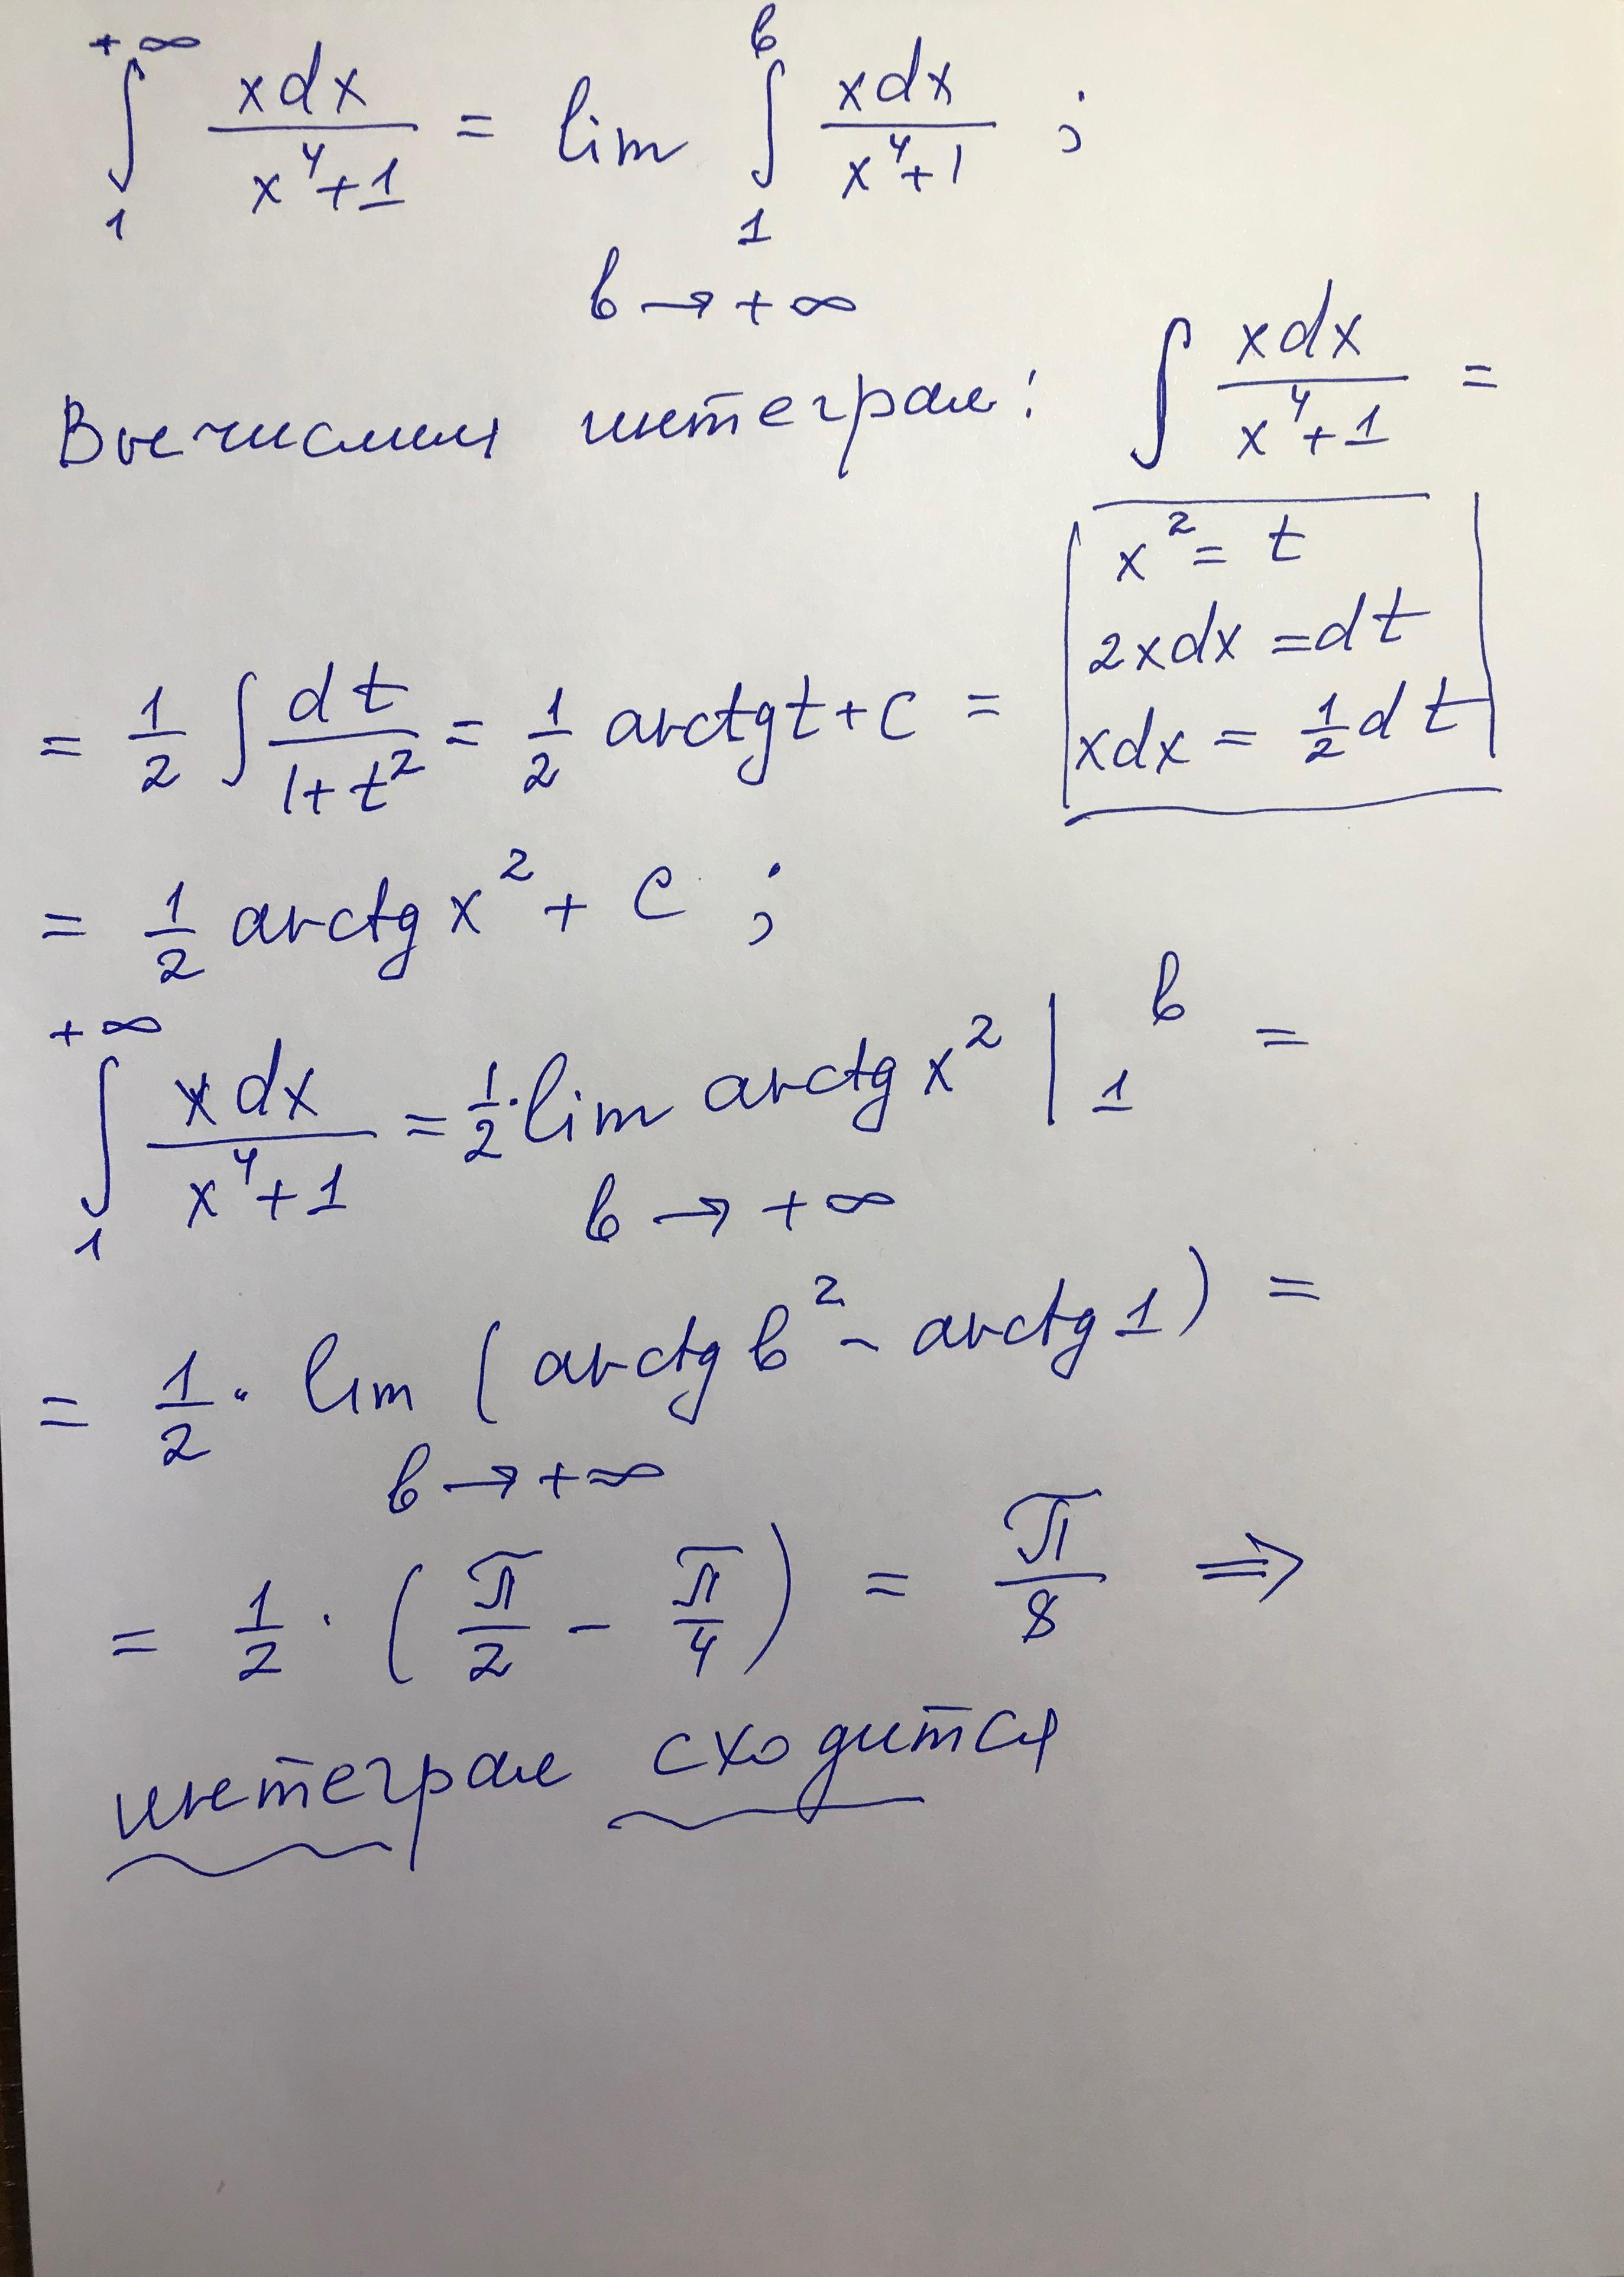 +∞ ∫ 1 xdx / x⁴+1 = lim b → +∞ ∫ 1 b xdx / x⁴+1 ;
Вычислим интеграл: ∫ xdx / x⁴+1 =
x² = t
2xdx = dt
xdx = 1/2 dt
= 1/2 ∫ dt / 1+t² = 1/2 arctg t + C =
= 1/2 arctg x² + C ;
+∞ ∫ 1 xdx / x⁴+1 = 1/2 · lim b → +∞ arctg x² | 1 b =
= 1/2 · lim b → +∞ (arctg b² - arctg 1) =
= 1/2 · (π/2 - π/4) = π/8 ⇒
интеграл сходится